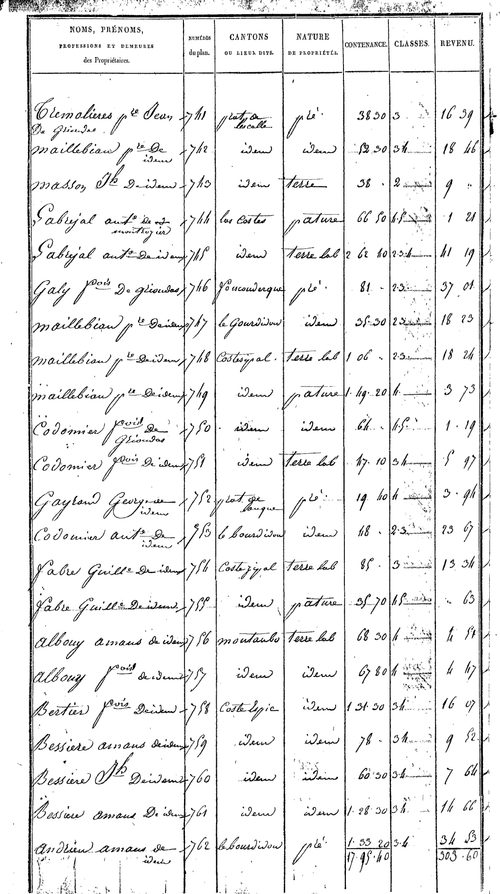 NOMS, PRÉNOMS, PROFESSIONS ET DEMEURES des Propriétaires. NUMÉROS du plan. CANTONS OU LIEUX DITS. NATURE DE PROPRIÉTÉS. CONTENANCE. CLASSES. REVENU.
Tremolieres pre Jean 741 prat de pré 38 30 3 16 39
De Grioudas
Maillebiau pre De idem 742 idem idem 52 30 34 18 46
Masson Jh De idem 743 idem terre 38 - 2 9 "
Gabrejal ant. de 744 las Costes pature 66 50 45 1 21
montrozier
Gabrejal ant. de idem 745 idem terre lab 2 62 40 234 41 19
Galy fcois De Grioudas 746 pré 81 - 23 37 01
Maillebiau pre De idem 747 le Gourdidou idem 35 30 23 18 23
Maillebiau pre De idem 748 terre lab 1 06 - 23 18 24
Maillebiau pre De idem 749 idem pature 1 49 20 4 3 73
Codomier fcois de 750 idem idem 64 - 45 1 19
Grioudas
Codomier fcois De idem 751 idem terre lab 47 10 34 5 97
Gayraud George de idem 752 prat de pré 19 40 4 3 94
Codomier ant. de idem 753 le bourdidou idem 48 - 23 23 67
Fabre Guill. De idem 754 terre lab 85 - 3 13 34
Fabre Guill. De idem 755 idem pature 35 70 45 63
Albouy amans de idem 756 montaubo terre lab 68 30 4 4 51
Albouy fcois de idem 757 idem idem 67 80 4 4 47
Bertier fcois De idem 758 Coste lepic idem 1 31 30 34 16 07
Bessiere amans de idem 759 idem idem 78 - 34 9 52
Bessiere Jh De idem 760 idem idem 60 30 34 7 64
Bessiere amans De idem 761 idem idem 1 28 30 34 14 66
Andrieu amans de idem 762 le bourdidou pré 1 33 20 34 34 53
17 95 40 303 60